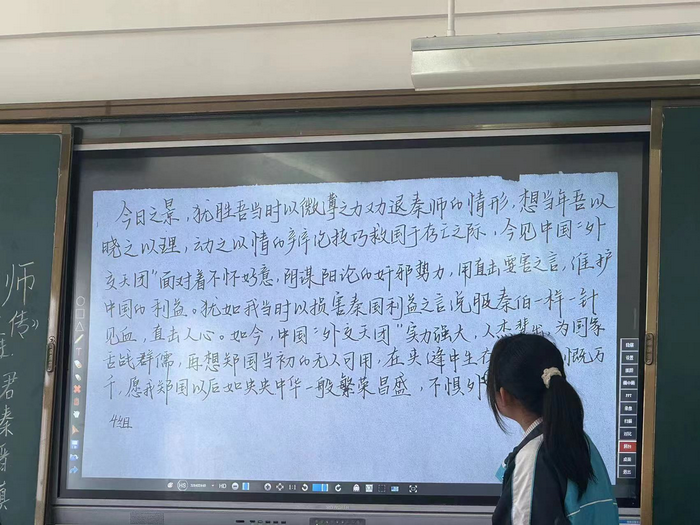 今日之景，犹胜吾当时以微薄之力劝退秦师的情形，想当年吾以
晓之以理，动之以情的辩论技巧救国于存亡之际，今见中国"外
交天团"面对着不怀好意，阴谋阳论的奸邪势力，用直击要害之言，维护
中国的利益。犹如我当时以损害秦国利益之言说服秦伯一样一针
见血，直击人心。如今，中国"外交天团"实力强大，人才辈出，为国家
舌战群儒，再想郑国当初的无人可用，在夹缝中生存，慨万
千，愿我郑国以后如泱泱中华一般繁荣昌盛，不惧外
4组
师
传》
君
秦
晋
HD